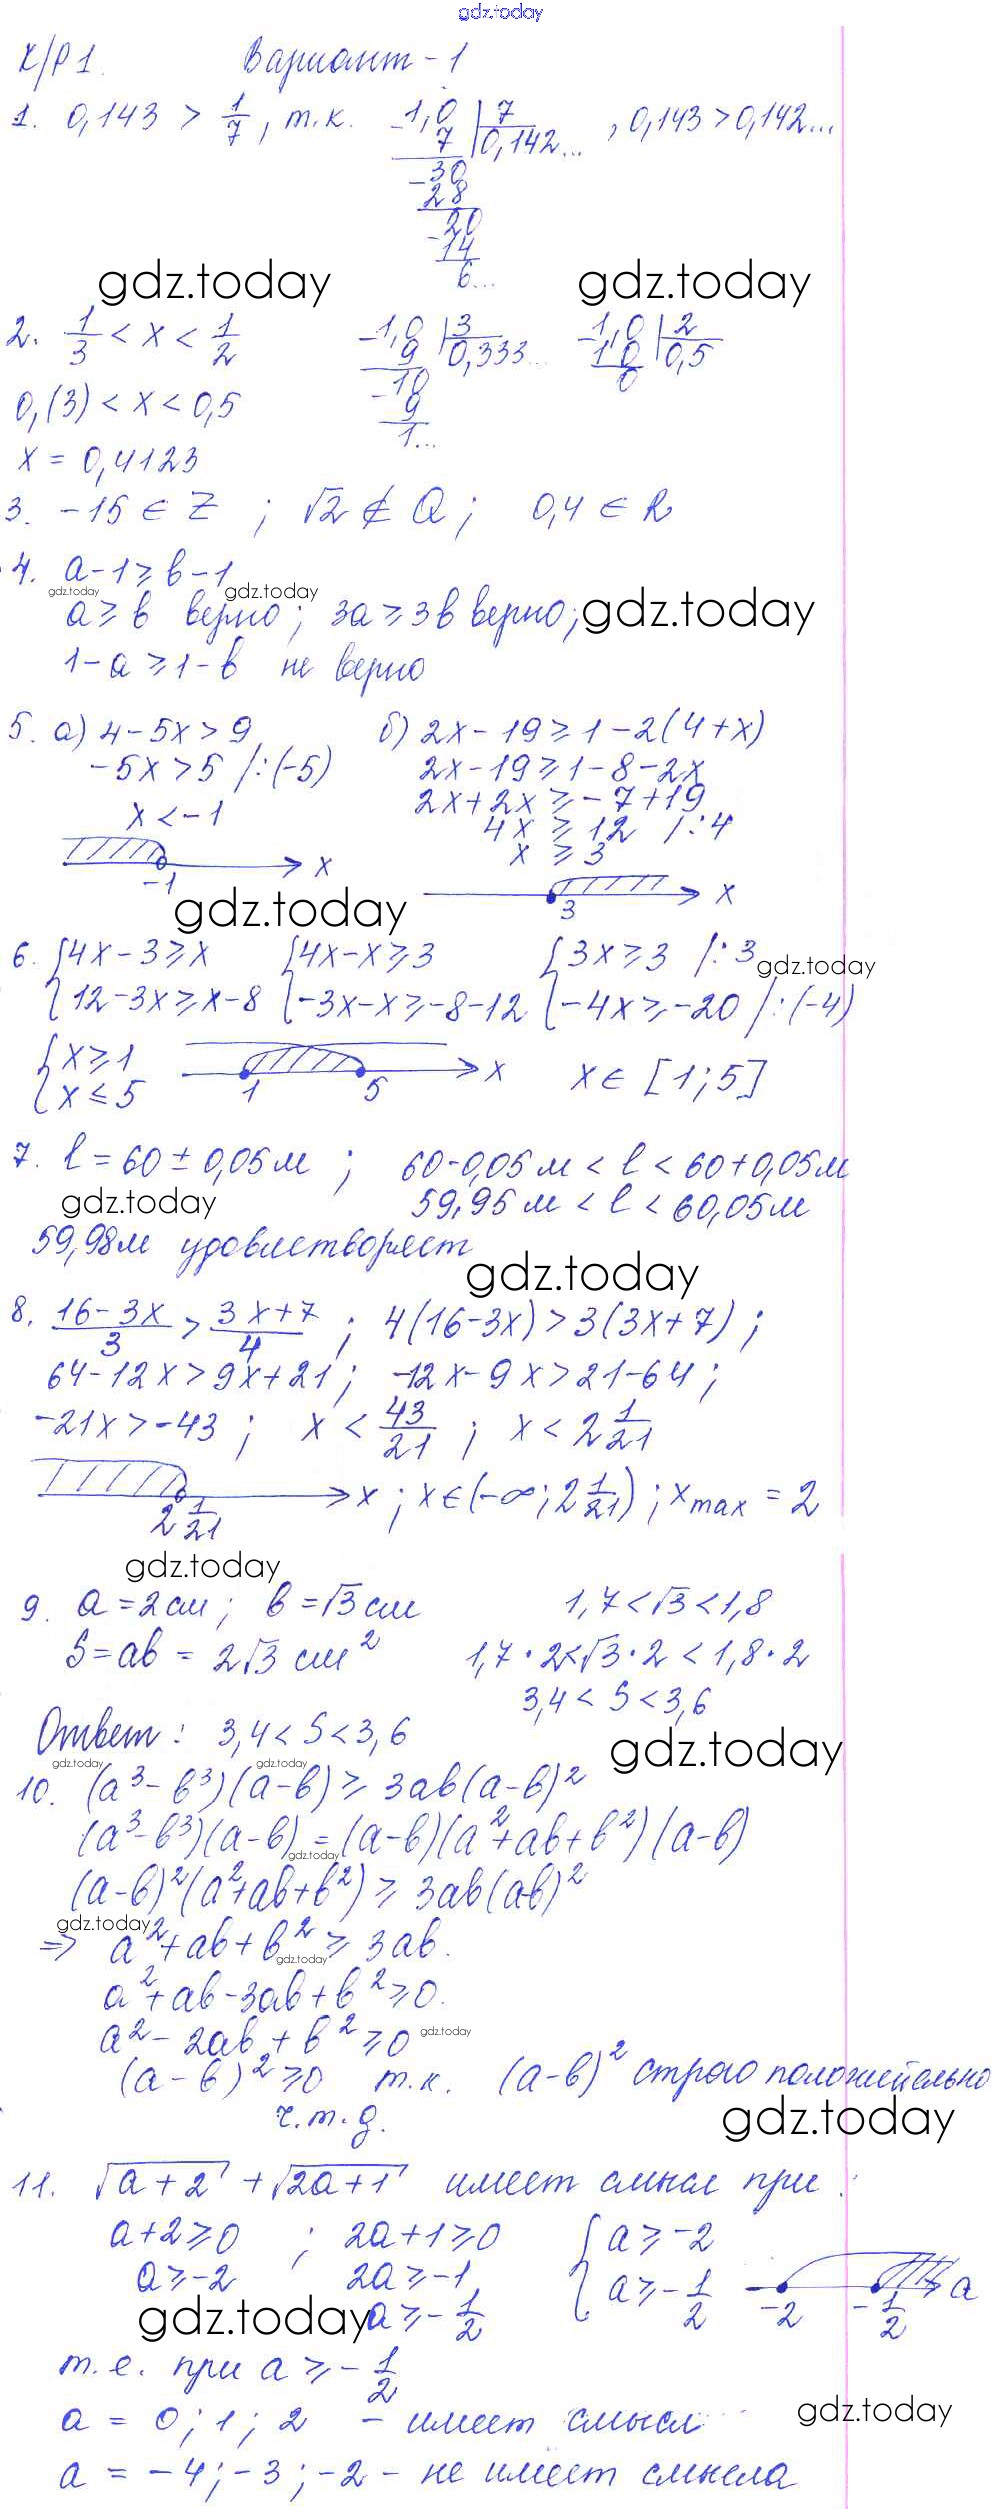 gdz.today
К/Р 1. Вариант - 1
1. 0,143 > 1/7, т.к. 1,0 | 7 , 0,143 > 0,142...
- 7 0,142...
-30
28
-20
14
6...
gdz.today gdz.today
2. 1/3 < x < 1/2 -1,0 | 3 -1,0 | 2
9 0,333... 10 0,5
0,(3) < x < 0,5 -10 0
9
1...
x = 0,4123
3. -15 ∈ Z ; √2 ∉ Q ; 0,4 ∈ R
4. a-1 ≥ b-1
gdz.today gdz.today gdz.today
a ≥ b верно ; 3a ≥ 3b верно;
1-a ≥ 1-b не верно
5. а) 4-5x > 9 б) 2x-19 ≥ 1-2(4+x)
-5x > 5 /:(-5) 2x-19 ≥ 1-8-2x
x < -1 2x+2x ≥ -7+19
4x ≥ 12 /:4
x ≥ 3
-1 x
3 x
gdz.today
6. {4x-3 ≥ x {4x-x ≥ 3 {3x ≥ 3 /:3
gdz.today
{12-3x ≥ x-8 {-3x-x ≥ -8-12 {-4x ≥ -20 /:(-4)
{x ≥ 1
{x ≤ 5 1 5 x x ∈ [1;5]
7. l = 60 ± 0,05 м ; 60-0,05 м < l < 60+0,05 м
gdz.today 59,95 м < l < 60,05 м
59,98 м удовлетворяет
gdz.today
8. (16-3x)/3 > (3x+7)/4 ; 4(16-3x) > 3(3x+7) ;
64-12x > 9x+21 ; -12x-9x > 21-64 ;
-21x > -43 ; x < 43/21 ; x < 2 1/21
2 1/21 x ; x ∈ (-∞; 2 1/21) ; x max = 2
gdz.today
9. a = 2 см ; b = √3 см 1,7 < √3 < 1,8
S = ab = 2√3 см² 1,7·2 < √3·2 < 1,8·2
3,4 < S < 3,6
Ответ : 3,4 < S < 3,6
gdz.today gdz.today gdz.today
10. (a³-b³)(a-b) ≥ 3ab(a-b)²
(a³-b³)(a-b) = (a-b)(a²+ab+b²)(a-b)
gdz.today
(a-b)²(a²+ab+b²) ≥ 3ab(ab)²
gdz.today
=> a²+ab+b² ≥ 3ab.
gdz.today
a²+ab-3ab+b² ≥ 0.
a²-2ab+b² ≥ 0
gdz.today
(a-b)² ≥ 0 т.к. (a-b)² строго положительно
ч.т.д.
gdz.today
11. √(a+2) + √(2a+1) имеет смысл при :
a+2 ≥ 0 ; 2a+1 ≥ 0 {a ≥ -2
a ≥ -2 2a ≥ -1 {a ≥ -1/2 -2 -1/2 a
gdz.today a ≥ -1/2
т.е. при a ≥ -1/2
a = 0 ; 1 ; 2 - имеет смысл
gdz.today
a = -4 ; -3 ; -2 - не имеет смысла